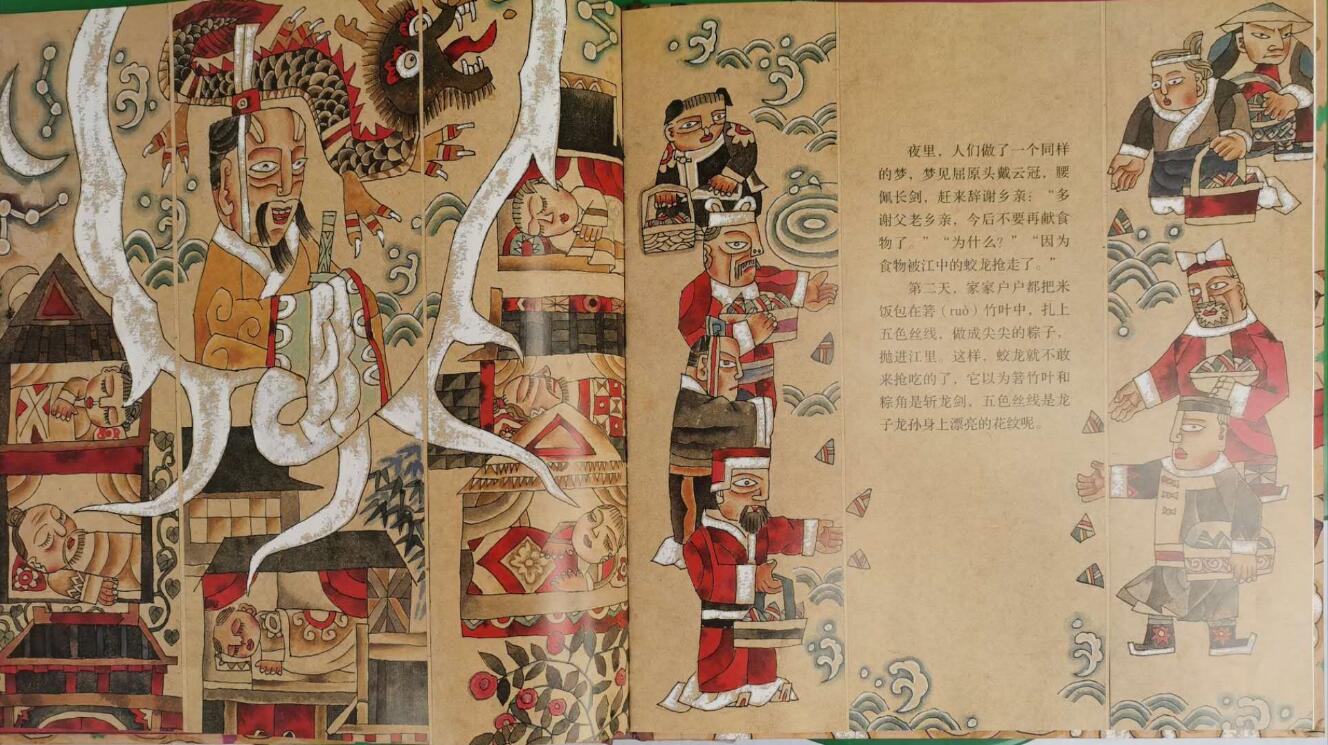 夜里，人们做了一个同样
的梦，梦见屈原头戴云冠，腰
佩长剑，赶来辞谢乡亲：“多
谢父老乡亲，今后不要再献食
物了。”“为什么？”“因为
食物被江中的蛟龙抢走了。”
第二天，家家户户都把米
饭包在箬（ruò）竹叶中，扎上
五色丝线，做成尖尖的粽子，
抛进江里。这样，蛟龙就不敢
来抢吃的了，它以为箬竹叶和
粽角是斩龙剑，五色丝线是龙
子龙孙身上漂亮的花纹呢。